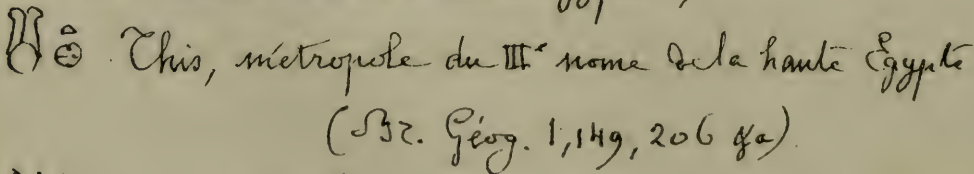 This, métropole du IIIᵉ nome de la haute Égypte
(Br. Géog. 1, 149, 206